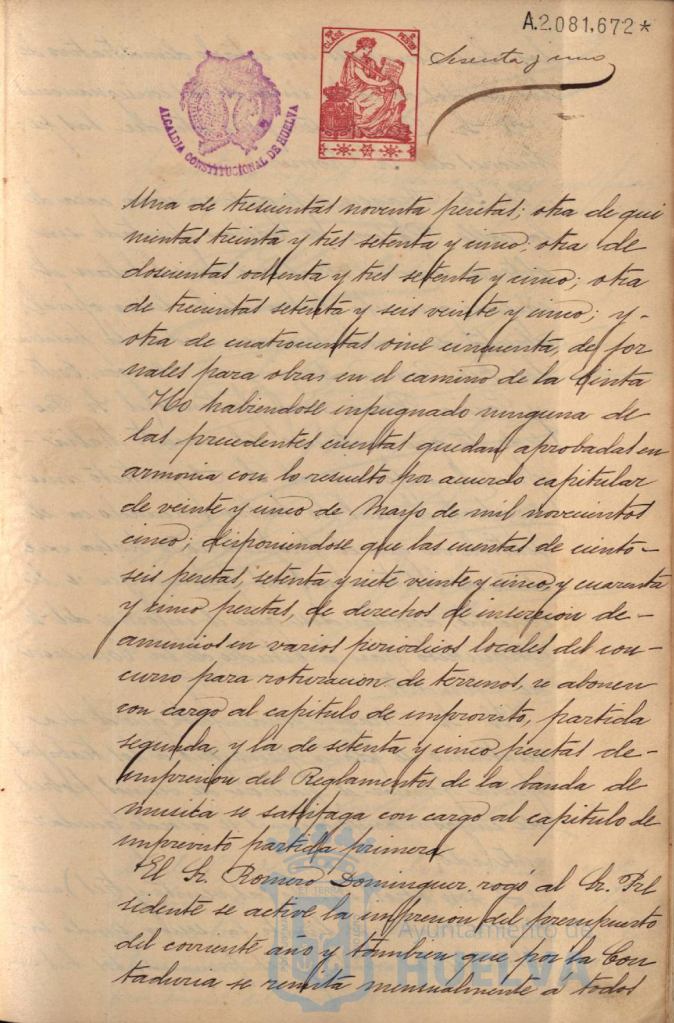 A.2.081,672*
9ª CLASE PESETA
Sesenta y uno
ALCALDIA CONSTITUCIONAL DE HUELVA
Una de trescientas noventa pesetas; otra de qui
nientas treinta y tres setenta y cinco; otra de
doscientas ochenta y tres setenta y cinco; otra
de trecientas setenta y seis veinte y cinco; y-
otra de cuatrocientas once cincuenta, de jor
nales para obras en el camino de la Cinta
No habiendose inpugnado ninguna de
las precedentes cuentas quedan aprobadas en
armonia con lo resuelto por acuerdo capitular
de veinte y cinco de Mayo de mil novecientos
cinco; disponiendose que las cuentas de ciento-
seis pesetas, setenta y siete veinte y cinco, y cuarenta
y cinco pesetas, de derechos de insercion de-
anuncios en varios periodicos locales del con-
curso para roturacion de terrenos, se abonen
con cargo al capitulo de imprevisto, partida
segunda, y la de setenta y cinco pesetas de-
impresion del Reglamentos de la banda de
musica se satisfaga con cargo al capitulo de
imprevisto partida primera
El Sr. Romero Dominguez rogó al Sr. Pre
sidente se active la impresion del presupuesto
del corriente año y tambien que por la Con
taduria se remita mensualmente a todos
Ayuntamiento de
HUELVA